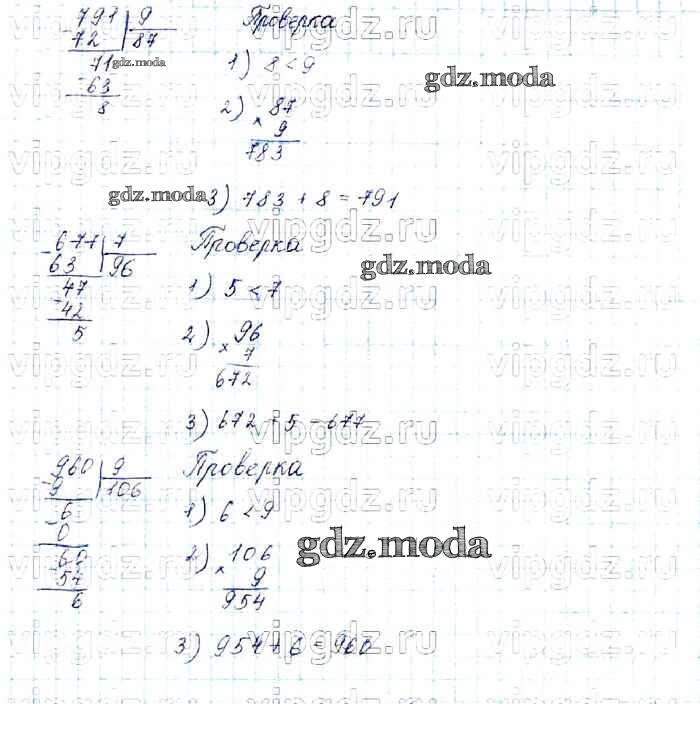 791 | 9 Проверка
72 | 87
71 1) 8 < 9
63
8 2) 87
× 9
783
3) 783 + 8 = 791
677 | 7 Проверка
63 | 96
47 1) 5 < 7
42
5 2) 96
× 7
672
3) 672 + 5 = 677
960 | 9 Проверка
9 | 106
6 1) 6 < 9
0
60 2) 106
54 × 9
6 954
3) 954 + 6 = 960
gdz.moda
gdz.moda
gdz.moda
gdz.moda
gdz.moda
vipgdz.ru